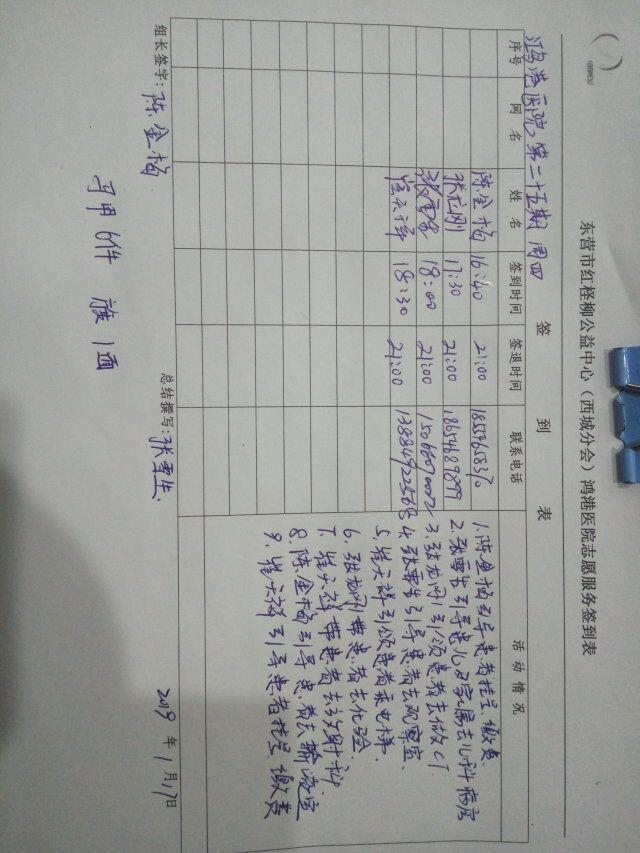 东营市红柽柳公益中心（西城分会）鸿港医院志愿服务签到表
签 到 表
鸿港医院第二十五期 周四
序号 网名 姓名 签到时间 签退时间 联系电话 活动情况
陈金梅 16:40 21:00
张龙刚 17:30 21:00 18654689899
张雪生 18:00 21:00
崔天祥 18:30 21:00
1.陈金梅引导患者挂号、缴费、
2.张雪生引导患儿及家属去儿科病房
3.张龙刚引领患者去做CT
4.张雪生引导患者去观察室.
5.崔天祥引领患者乘电梯.
6.张龙刚带患者去化验.
7.崔天祥带患者去放射科
8.陈金梅引导患者去输液室
9.崔天祥引导患者挂号缴费
组长签字：陈金梅 总结撰写：张雪生. 2019年1月17日
马甲6件 旗1面